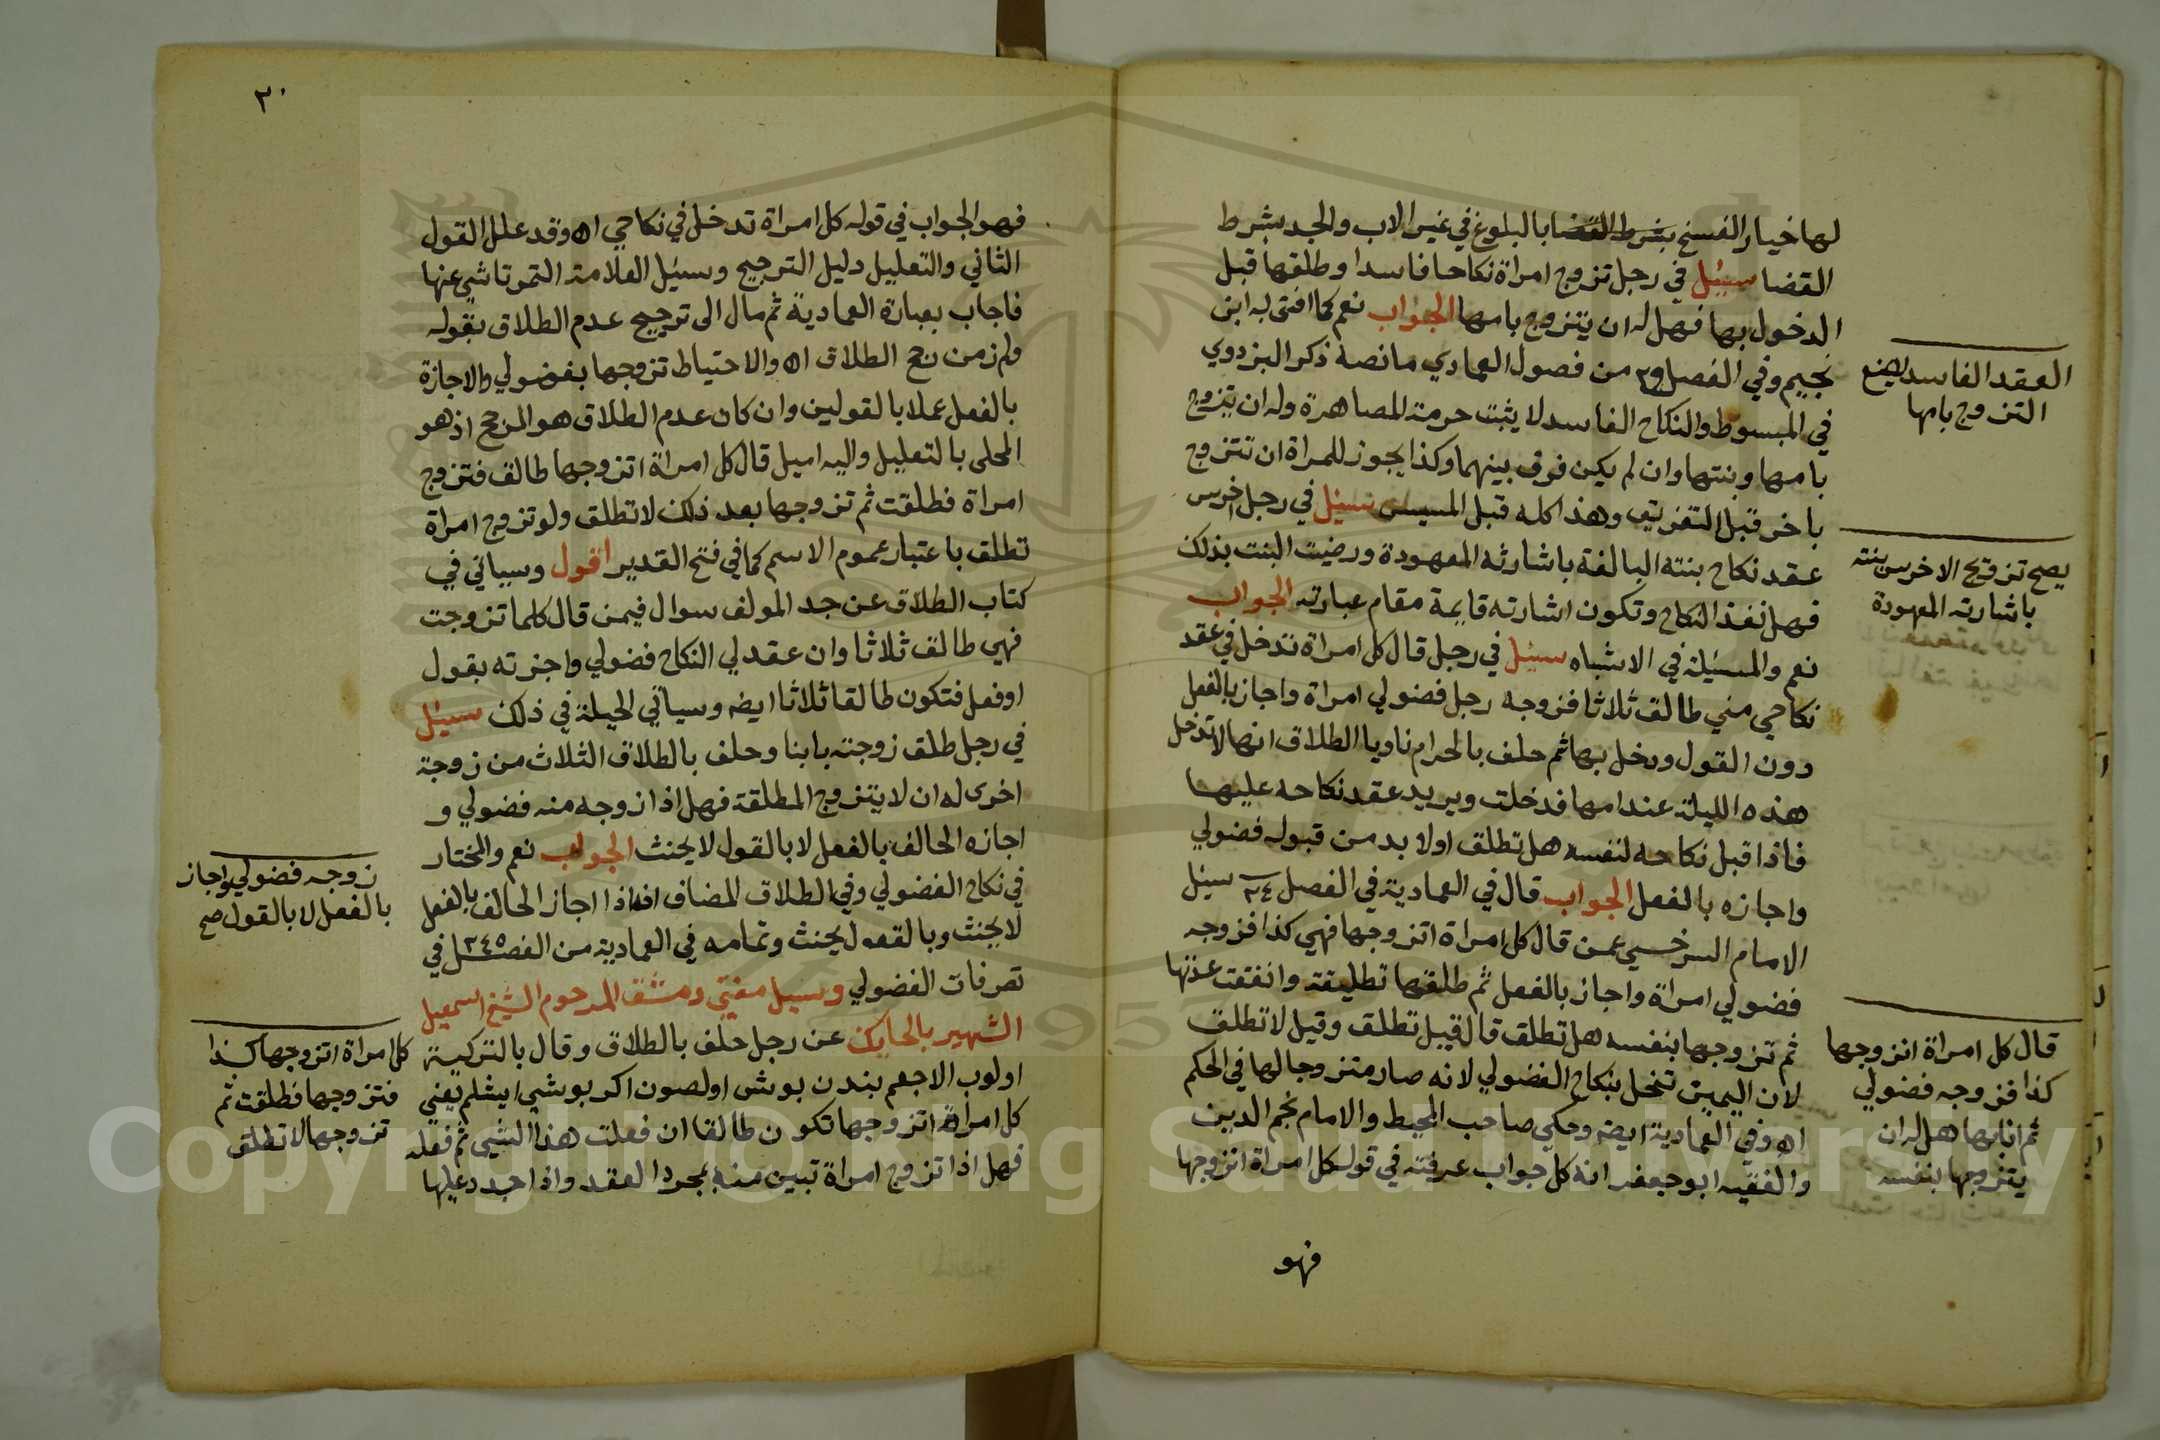 لها خيار الفسخ بشرط القضا بالبلوغ في غير الاب والجد بشرط
القضا سيئل في رجل تزوج امراة نكاحا فاسدا وطلقها قبل
الدخول بها فهل له ان يتزوج بامها الجواب نعم كما افتى به ابن
نجيم وفي الفصل من فصول العمادي ما نصه ذكر البزدوي
في المبسوط والنكاح الفاسد لا يثبت حرمة المصاهرة وله ان يتزوج
بامها وبنتها وان لم يكن فرق بينهما وكذا يجوز للمراة ان تتزوج
باخر قبل التفريق وهذا كله قبل المسيس سيئل في رجل اخرس
عقد نكاح بنته البالغة باشارته المعهودة ورضيت البنت بذلك
فهل نفذ النكاح وتكون اشارته قايمة مقام عبارته الجواب
نعم والمسئلة في الاشباه سيئل في رجل قال كل امراة تدخل في عقد
نكاحي مني طالق ثلاثا فزوجه رجل فضولي امراة واجاز بالفعل
دون القول ودخل بها ثم حلف بالحرام ناويا الطلاق انها لا تدخل
هذه الليلة عند امها فدخلت ويريد عقد نكاحه عليها
فاذا قبل نكاحه لنفسه هل تطلق اولا بد من قبوله فضولي
واجازه بالفعل الجواب قال في العمادية في الفصل ٢٤ سيئل
الامام السرخسي عمن قال كل امراة اتزوجها فهي كذا فزوجه
فضولي امراة واجاز بالفعل ثم طلقها تطليقة وانقضت عدتها
ثم تزوجها بنفسه هل تطلق قال قيل تطلق وقيل لا تطلق
لان اليمين تنحل بنكاح الفضولي لانه صار متزوجا لها في الحكم
اه وفي العمادية ايضه وحكي صاحب المحيط والامام نجم الدين
والفقيه ابو جعفر انه كل جواب عرفته في قوله كل امراة اتزوجها
فهو
العقد الفاسد لا يمنع
التزوج بامها
يصح تزويج الاخرس بنته
باشارته المعهودة
قال كل امراة اتزوجها
كذا فزوجه فضولي
ثم ابانها هل له ان
يتزوجها بنفسه
٢٠
فهو الجواب في قوله كل امراة تدخل في نكاحي اه وقد علل القول
الثاني والتعليل دليل الترجيح وسيئل العلامة التمرتاشي عنها
فاجاب بعبارة العمادية ثم مال الى ترجيح عدم الطلاق بقوله
ولم ز من رجح الطلاق اه والاحتياط تزوجها بفضولي والاجازة
بالفعل عملا بالقولين وان كان عدم الطلاق هو المرجح اذ هو
المحلى بالتعليل واليه اميل قال كل امراة اتزوجها طالق فتزوج
امراة فطلقت ثم تزوجها بعد ذلك لا تطلق ولو تزوج امراة
تطلق باعتبار عموم الاسم كما في فتح القدير اقول وسياتي في
كتاب الطلاق عن جد المولف سوال فيمن قال كلما تزوجت
فهي طالق ثلاثا وان عقد لي النكاح فضولي واجزته بقول
او فعل فتكون طالقا ثلاثا ايضه وسياتي الحيلة في ذلك سيئل
في رجل طلق زوجته باينا وحلف بالطلاق الثلاث من زوجة
اخرى له ان لا يتزوج المطلقة فهل اذا زوجه منه فضولي و
اجازه الحالف بالفعل لا بالقول لا يحنث الجواب نعم والمختار
في نكاح الفضولي وفي الطلاق المضاف انه اذا اجاز الحالف بالفعل
لا يحنث وبالقول يحنث وتمامه في العمادية من الفصل ٢٤ في
تصرفات الفضولي وسيل مفتي دمشق المرحوم الشيخ اسمعيل
الشهير بالحايك عن رجل حلف بالطلاق وقال بالتركية
اولوب الاجغم بندن بوش اولصون اكر بو شيي ايشلم يعني
كل امراة اتزوجها تكون طالقا ان فعلت هذا الشيي ثم فعله
فهل اذا تزوج امراة تبين منه بمجرد العقد واذا جدد عليها
زوجه فضولي واجاز
بالفعل لا بالقول صح
كل امراة اتزوجها كذا
فتزوجها فطلقت ثم
تزوجها لا تطلق
Copyright © King Saud University